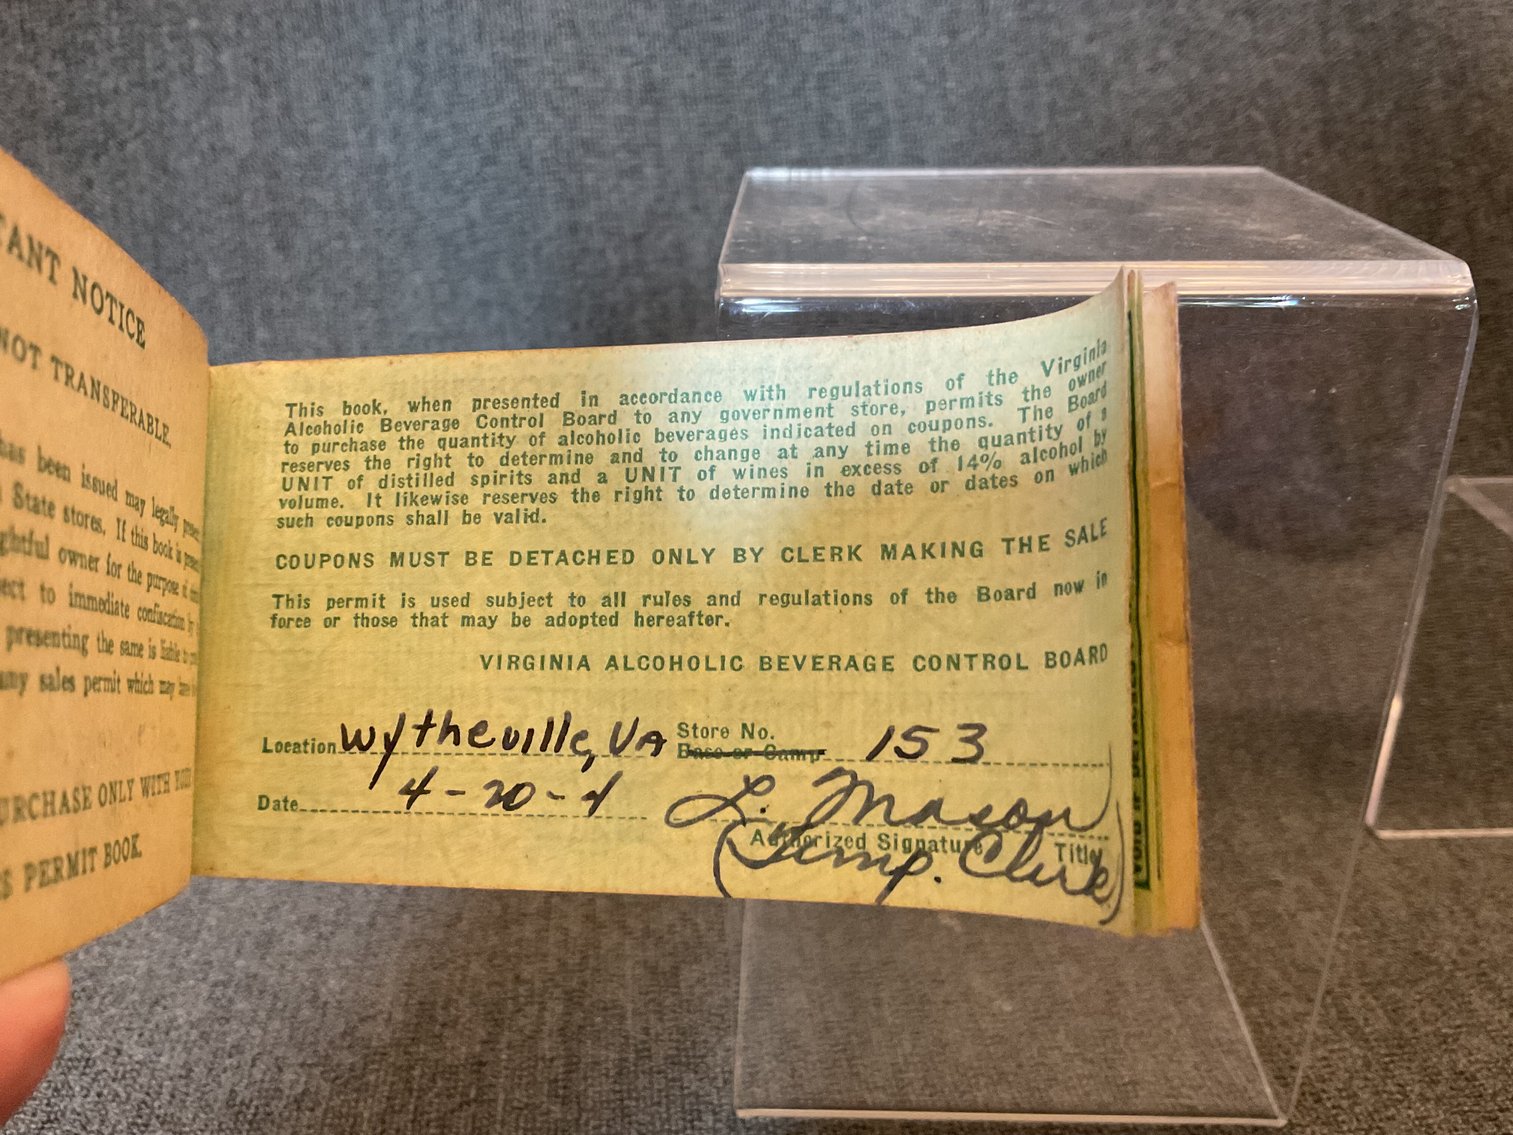 TANT NOTICE
NOT TRANSFERABLE.
has been issued may legally
State stores. If this book is
owner for the purpose of
to immediate confiscation by
presenting the same is liable to
any sales permit which may
PURCHASE ONLY WITH
PERMIT BOOK.
This book, when presented in accordance with regulations of the Virginia
Alcoholic Beverage Control Board to any government store, permits the owner
to purchase the quantity of alcoholic beverages indicated on coupons. The Board
reserves the right to determine and to change at any time the quantity of a
UNIT of distilled spirits and a UNIT of wines in excess of 14% alcohol by
volume. It likewise reserves the right to determine the date or dates on which
such coupons shall be valid.
COUPONS MUST BE DETACHED ONLY BY CLERK MAKING THE SALE
This permit is used subject to all rules and regulations of the Board now in
force or those that may be adopted hereafter.
VIRGINIA ALCOHOLIC BEVERAGE CONTROL BOARD
Location Wytheville, VA Store No. 153
Base or Camp
Date 4-20-4 L. Mason
Authorized Signature Title
(Temp. Clerk)